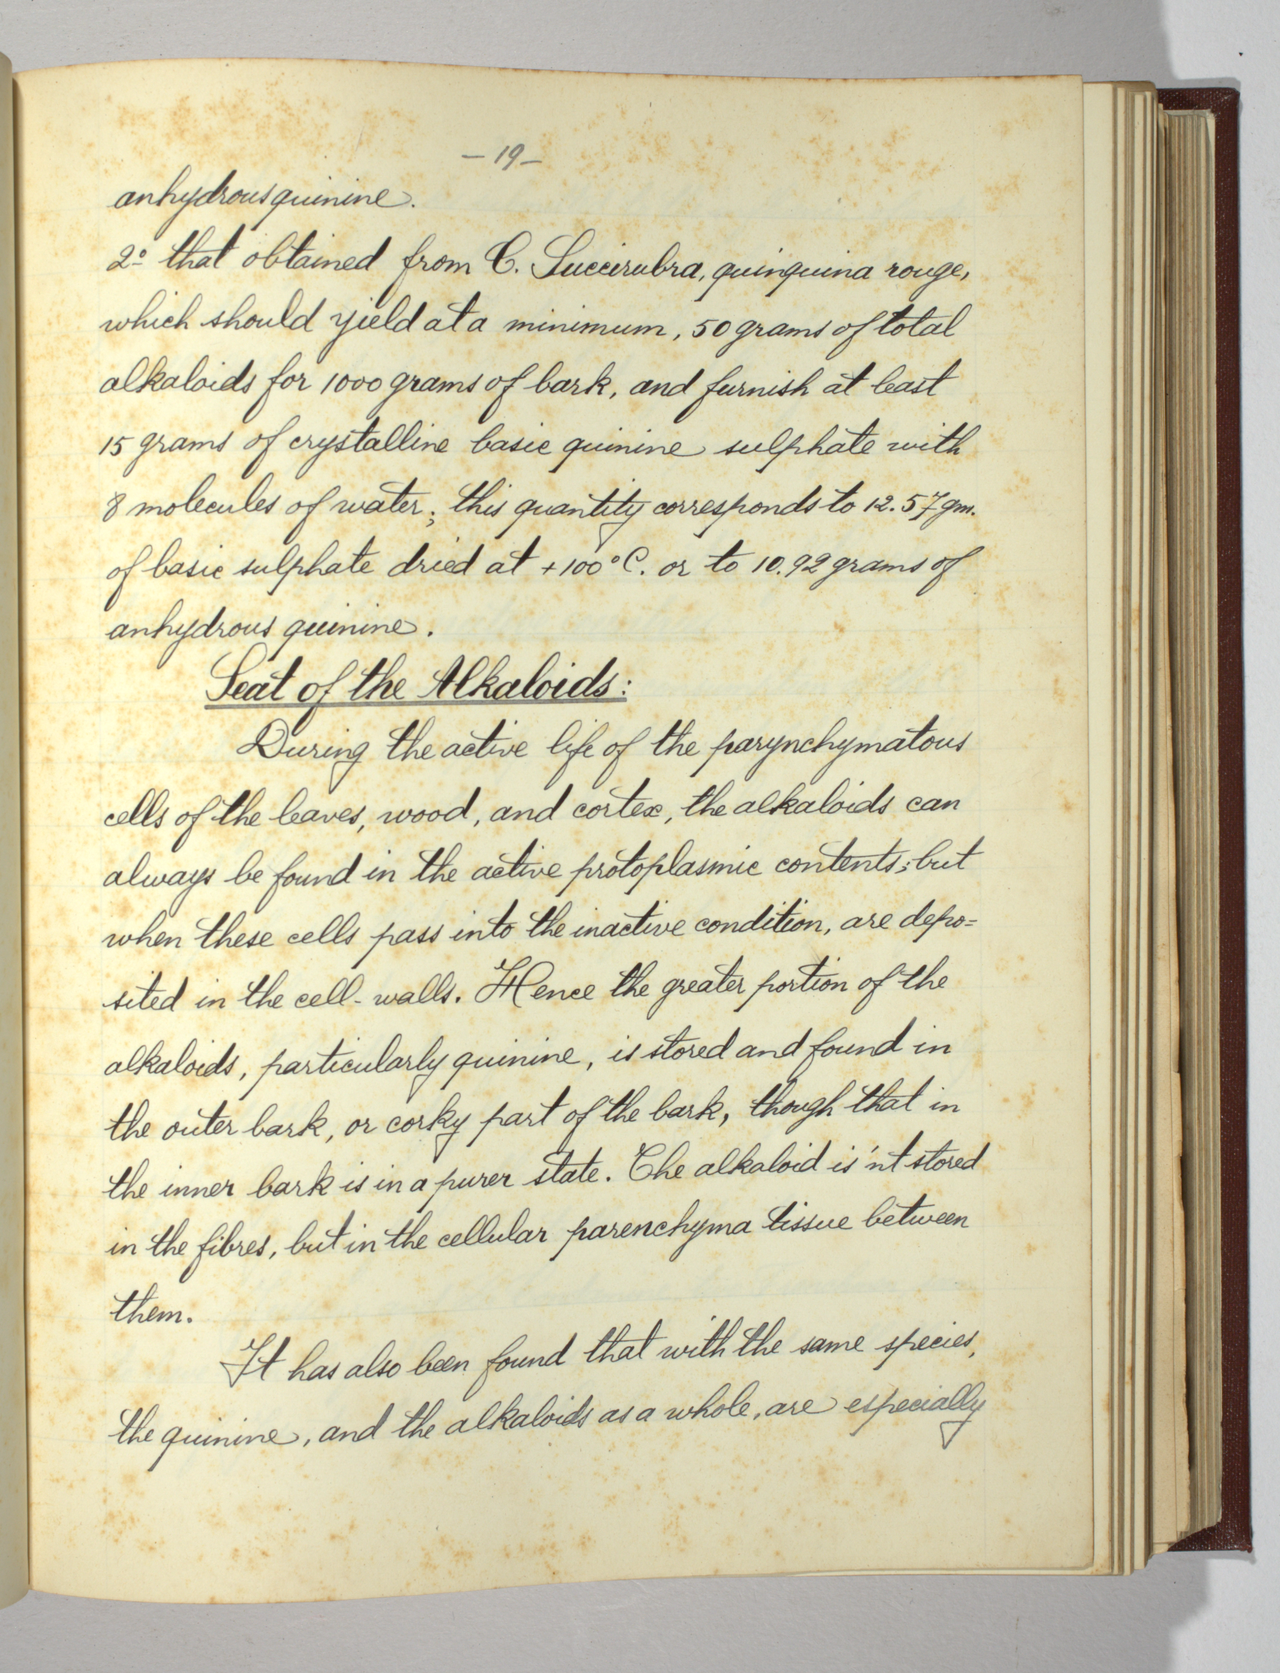 -19-
anhydrous quinine.
2º that obtained from C. Succirubra, quinquina rouge,
which should yield at a minimum, 50 grams of total
alkaloids for 1000 grams of bark, and furnish at least
15 grams of crystalline basic quinine sulphate with
8 molecules of water; this quantity corresponds to 12.57 gm.
of basic sulphate dried at +100°C. or to 10.92 grams of
anhydrous quinine.
Seat of the Alkaloids:
During the active life of the parynchymatous
cells of the leaves, wood, and cortex, the alkaloids can
always be found in the active protoplasmic contents; but
when these cells pass into the inactive condition, are depo=
sited in the cell-walls. Hence the greater portion of the
alkaloids, particularly quinine, is stored and found in
the outer bark, or corky part of the bark, though that in
the inner bark is in a purer state. The alkaloid is'nt stored
in the fibres, but in the cellular parenchyma tissue between
them.
It has also been found that with the same species,
the quinine, and the alkaloids as a whole, are especially